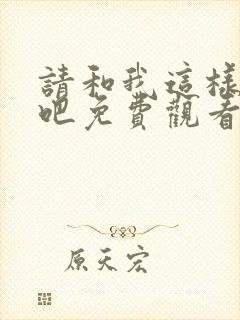 請和我這樣
吧免費觀看
原天宏